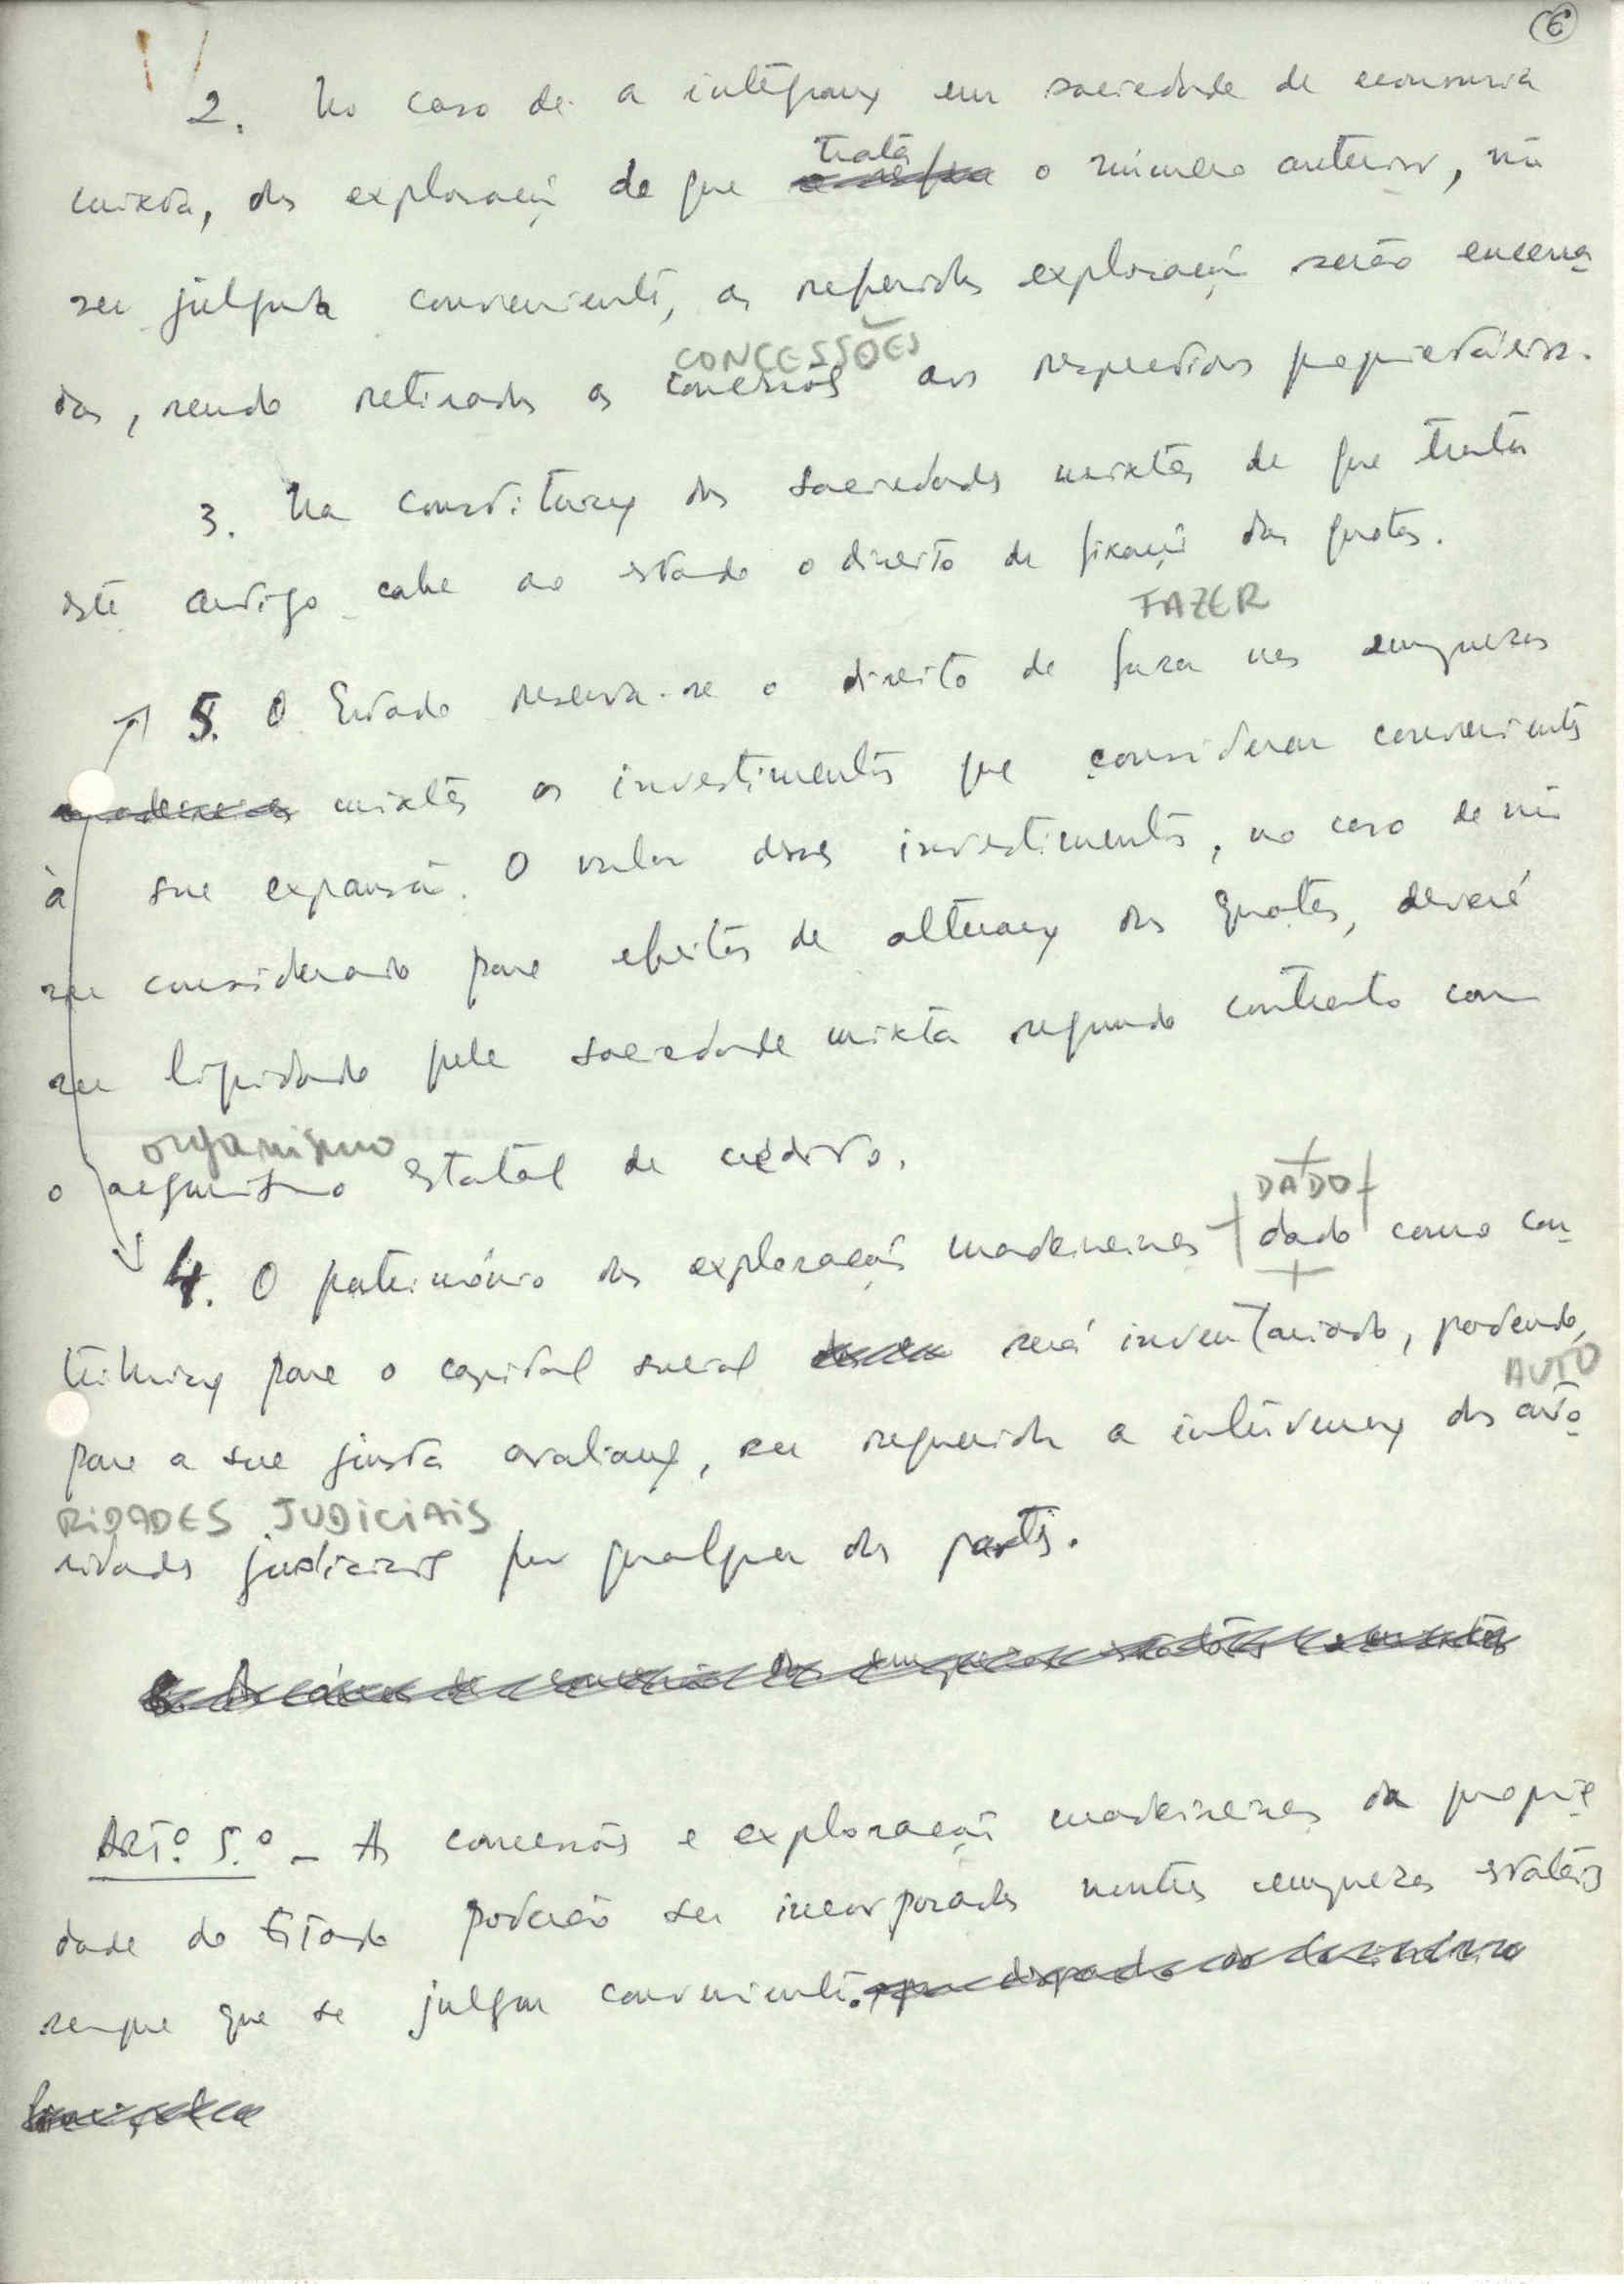 6
2. No caso de a integração em sociedade de economia
trata
mixta, das explorações de que o número anterior, não
ser julgada conveniente, as referidas explorações serão encerra-
CONCESSÕES
das, sendo retiradas as concessões aos respectivos proprietários.
3. Na constituição das sociedades mixtas de que trata
este artigo cabe ao estado o direito de fixação das quotas.
FAZER
5. O Estado reserva-se o direito de fazer nas empresas
mixtas os investimentos que considerar convenientes
à sua expansão. O valor desses investimentos, no caso de não
ser considerado para efeitos de alteração das quotas, deverá
ser liquidado pela sociedade mixta segundo contrato com
organismo
o organismo estatal de crédito.
DADO
4. O património das explorações madeireiras dado como con-
tribuição para o capital social será inventariado, podendo,
AUTO
para a sua justa avaliação, ser requerida a intervenção das auto-
RIDADES JUDICIAIS
ridades judiciais por qualquer das partes.
ARTº. 5.º - As concessões e explorações madeireiras da proprie-
dade do Estado poderão ser incorporadas noutras empresas estatais
sempre que se julgar conveniente.